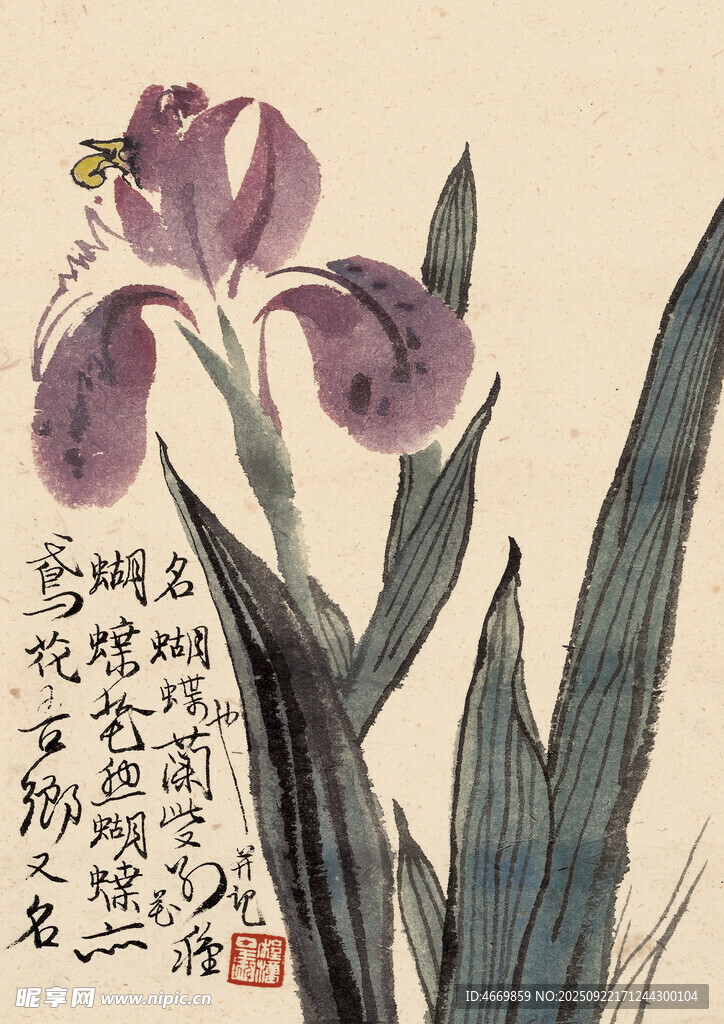 鳶花吾鄉又名
蝴蝶花然蝴蝶花亦
名蝴蝶蘭此又別種
也
并記
昵享网 www.nipic.cn
ID:4669859 NO:20250922171244300104